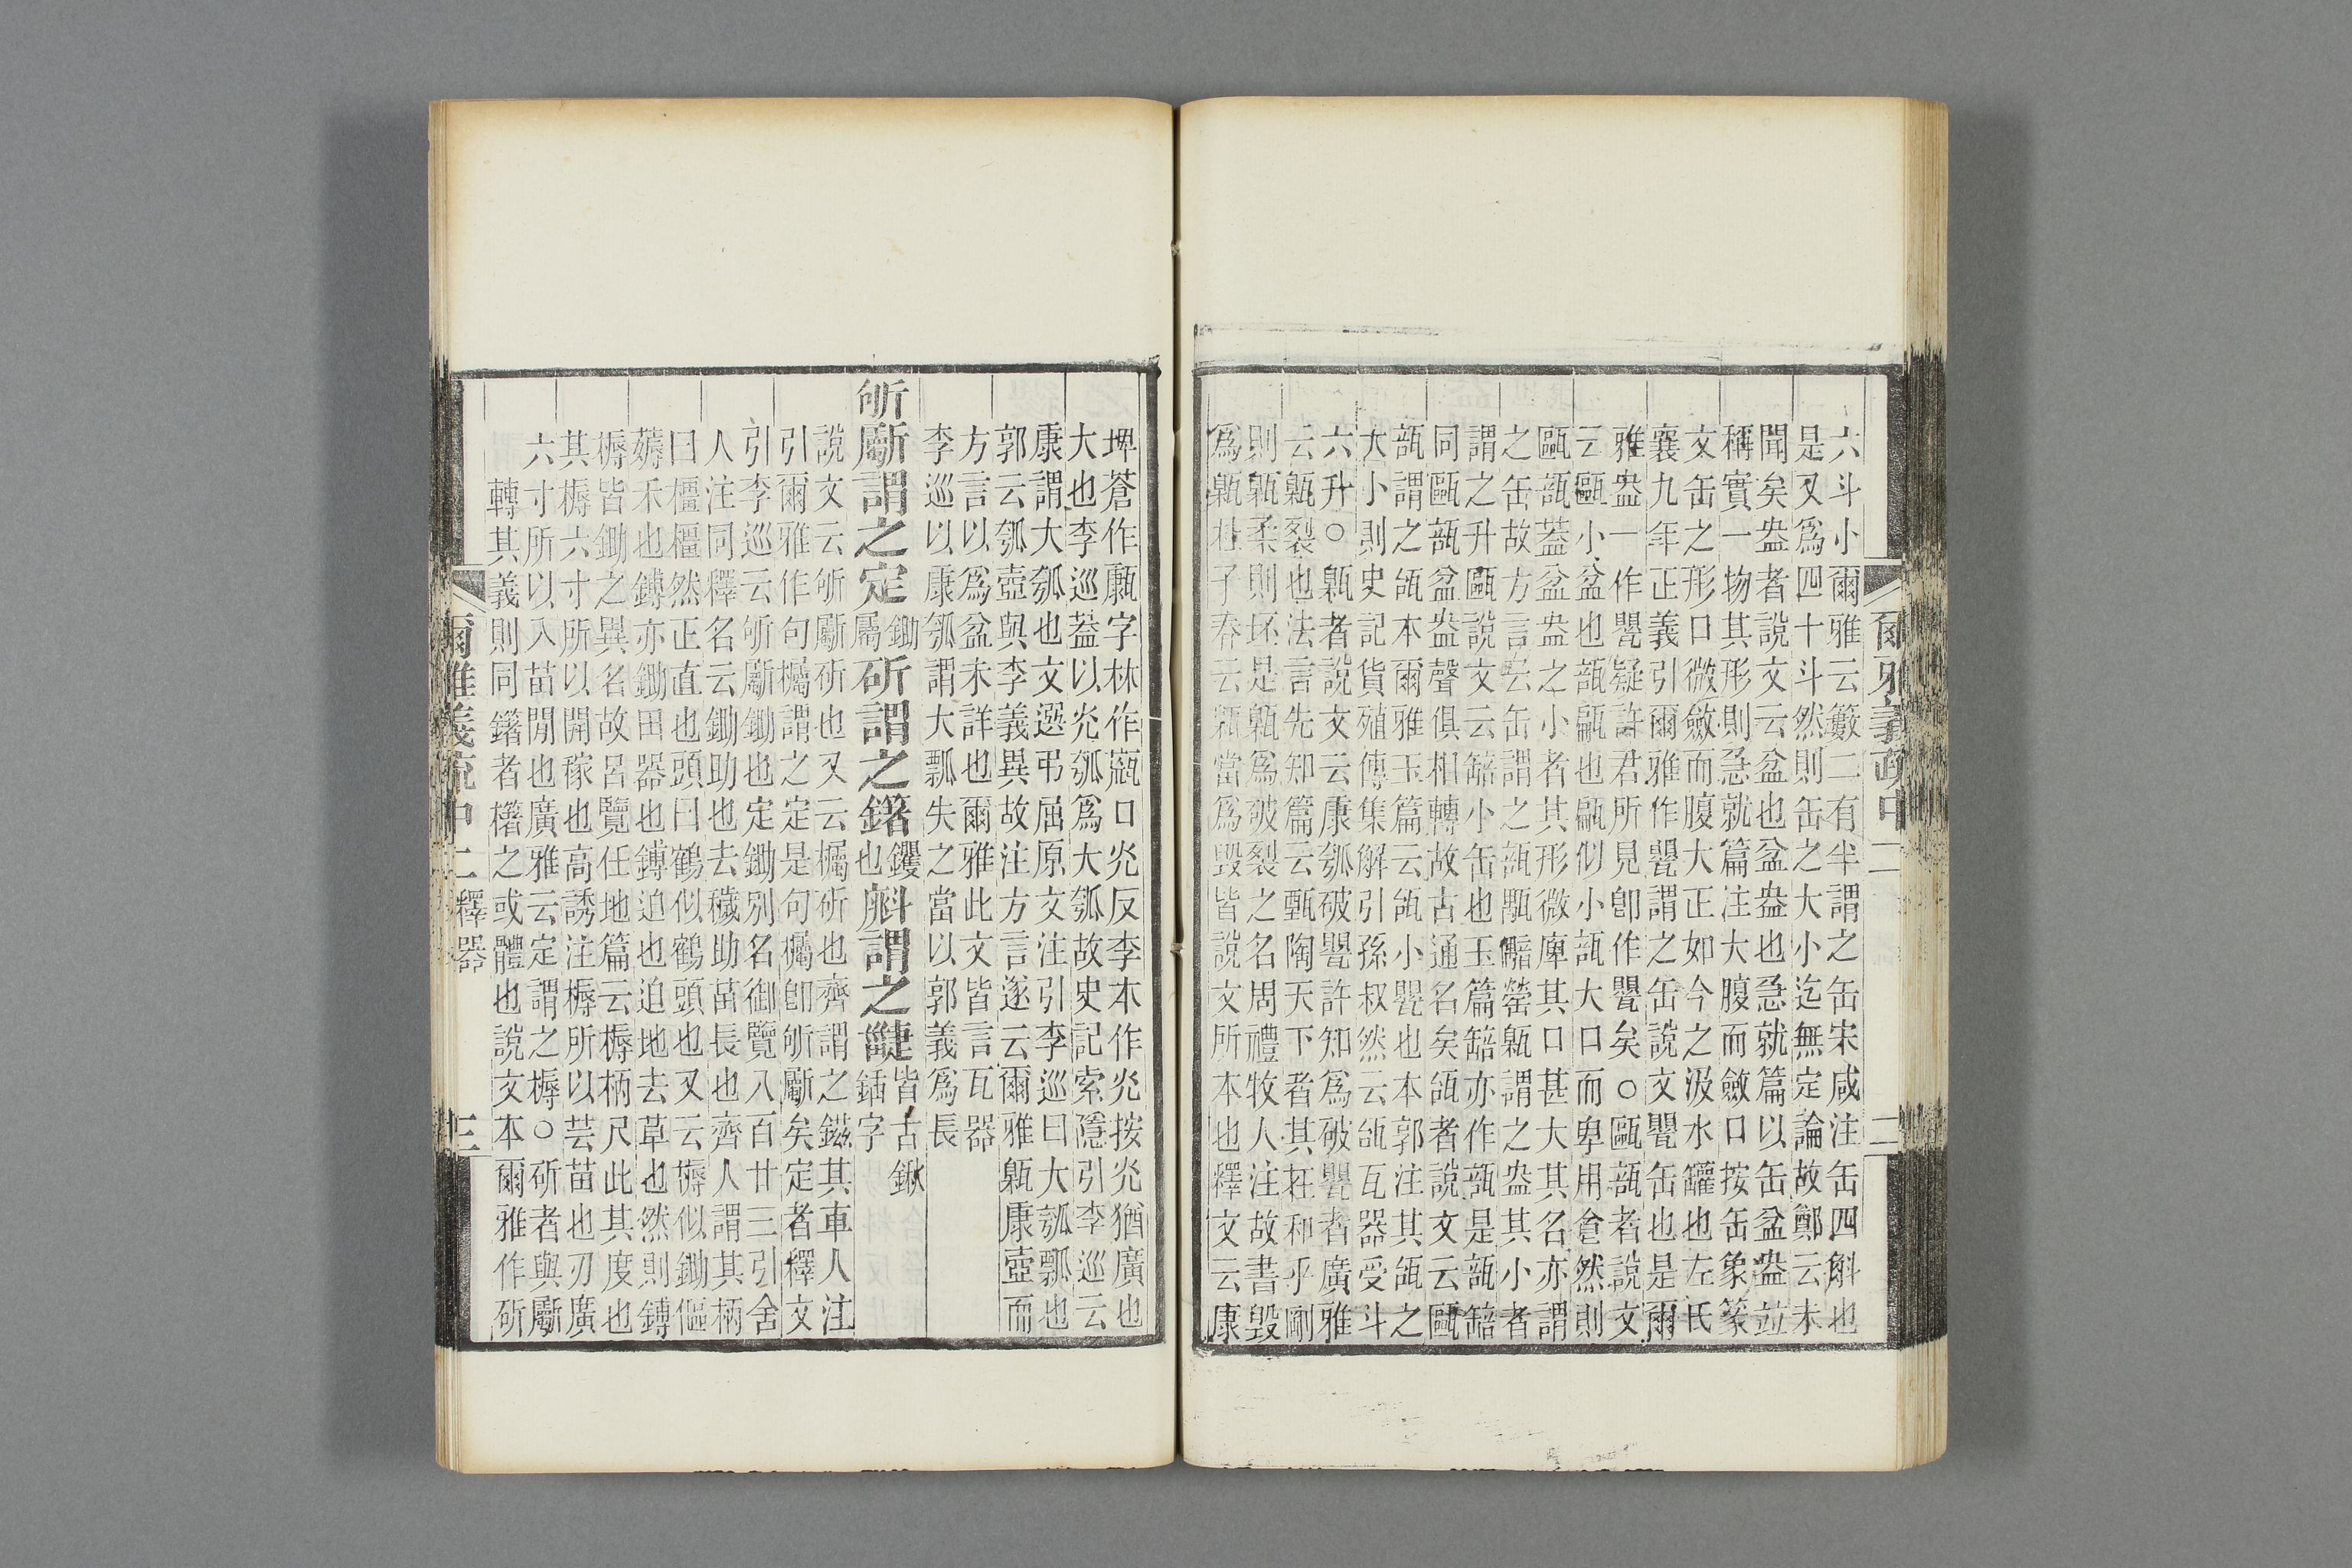 六斗小爾雅云籔二有半謂之缶宋咸注缶四斛也
是又爲四十斗然則缶之大小迄無定論故鄭云未
聞矣盎者說文云盆也盆盎也急就篇以缶盆盎竝
稱實一物其形則急就篇注大腹而斂口按缶象篆
文缶之形口微斂而腹大正如今之汲水罐也左氏
襄九年正義引爾雅作甖謂之缶說文甖缶也是爾
雅盎一作甖疑許君所見卽作甖矣○甌瓿者說文
云甌小盆也瓿甂也甂似小瓿大口而卑用食然則
甌瓿葢盆盎之小者其形微庳其口甚大其名亦謂
之缶故方言云缶謂之瓿甊罃甈謂之盎其小者
謂之升甌說文云䍌小缶也玉篇䍌亦作瓿是瓿䍌
同甌瓿盆盎聲俱相轉故古通名矣瓵者說文云甌
瓿謂之瓵本爾雅玉篇云瓵小甖也本郭注其瓵之
大小則史記貨殖傳集解引孫叔然云瓵瓦器受斗
六升○甈者說文云康瓠破甖許知爲破甖者廣雅
云甈裂也法言先知篇云甄陶天下者其在和乎剛
則甈柔則坯是甈爲破裂之名周禮牧人注故書毀
爲甈杜子春云甈當爲毀皆說文所本也釋文云康
爾雅義疏中二
二
埤蒼作㼹字林作㼹口光反李本作光按光猶廣也
大也李巡葢以光瓠爲大瓠故史記索隱引李巡云
康謂大瓠也文選弔屈原文注引李巡曰大瓠瓢也
郭云瓠壺與李義異故注方言遂云爾雅甈康壺而
方言以爲盆未詳也爾雅此文皆言瓦器
李巡以康瓠謂大瓢失之當以郭義爲長
斪斸謂之定鋤屬斫謂之鐯钁也斛謂之疀皆古鍬鍤字
說文云斪斸斫也又云欘斫也齊謂之鎡其車人注
引爾雅作句欘謂之定是句欘卽斪斸矣定者釋文
引李巡云斪斸鋤也定鋤別名御覽八百廿三引舍
人注同釋名云鋤助也去穢助苗長也齊人謂其柄
曰橿橿然正直也頭曰鶴似鶴頭也又云耨似鋤傴
薅禾也鎛亦鋤田器也鎛迫也迫地去草也然則鎛
耨皆鋤之異名故呂覽任地篇云耨柄尺此其度也
其耨六寸所以閒稼也高誘注耨所以芸苗也刃廣
六寸所以入苗閒也廣雅云定謂之耨○斫者與斸
轉其義則同鐯者櫡之或體也說文本爾雅作斫
爾雅義疏中二釋器
三